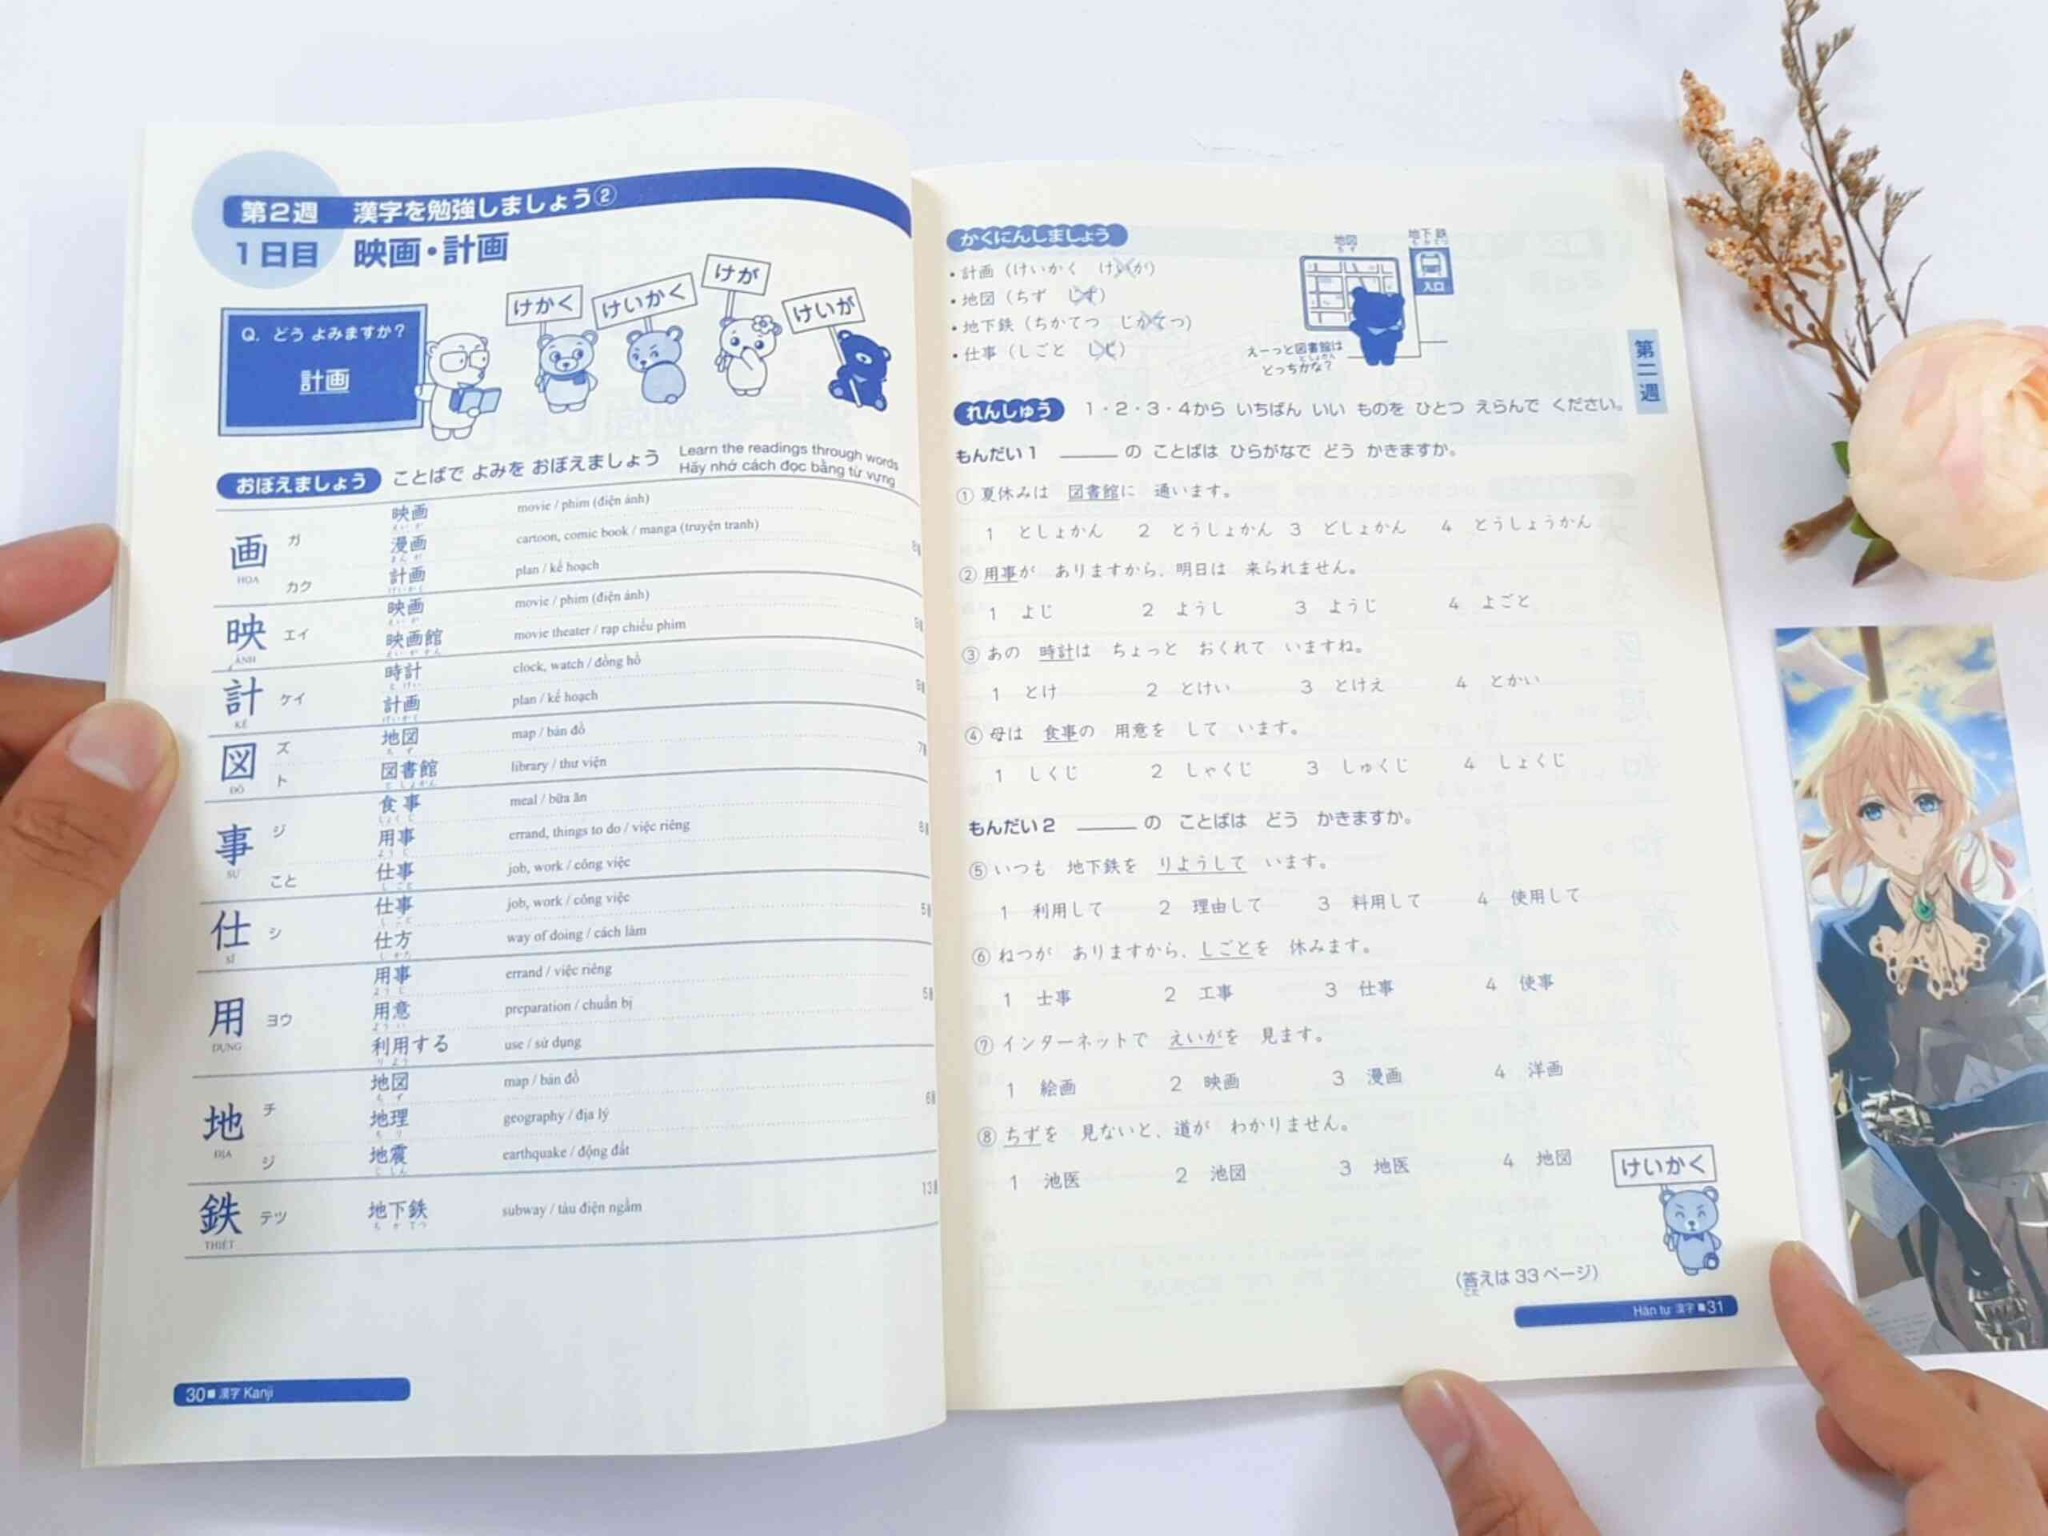 第2週 漢字を勉強しましょう②
1日目 映画・計画
Q. どう よみますか？
計画
けかく
けいかく
けが
けいが
おぼえましょう ことばで よみを おぼえましょう
Learn the readings through words
Hãy nhớ cách đọc bằng từ vựng
画 HỌA ガ 映画 えいが movie / phim (điện ảnh)
漫画 まんが cartoon, comic book / manga (truyện tranh)
カク 計画 けいかく plan / kế hoạch
映 ÁNH エイ 映画 えいが movie / phim (điện ảnh)
映画館 えいがかん movie theater / rạp chiếu phim
計 KẾ ケイ 時計 とけい clock, watch / đồng hồ
計画 けいかく plan / kế hoạch
図 ĐỒ ズ 地図 ちず map / bản đồ
ト 図書館 としょかん library / thư viện
事 SỰ ジ 食事 しょくじ meal / bữa ăn
用事 ようじ errand, things to do / việc riêng
こと 仕事 しごと job, work / công việc
仕 SĨ シ 仕事 しごと job, work / công việc
仕方 しかた way of doing / cách làm
用 DỤNG ヨウ 用事 ようじ errand / việc riêng
用意 ようい preparation / chuẩn bị
利用する りよう use / sử dụng
地 ĐỊA チ 地図 ちず map / bản đồ
地理 ちり geography / địa lý
ジ 地震 じしん earthquake / động đất
鉄 THIẾT テツ 地下鉄 ちかてつ subway / tàu điện ngầm
30 漢字 Kanji
かくにんしましょう
・計画（けいかく けいが）
・地図（ちず じず）
・地下鉄（ちかてつ じかてつ）
・仕事（しごと しじ）
地図 ちず
地下鉄 ちかてつ
入口
えーっと図書館は としょかん
どっちかな？
第二週
れんしゅう 1・2・3・4から いちばん いい ものを ひとつ えらんで ください。
もんだい1 ＿＿＿の ことばは ひらがなで どう かきますか。
① 夏休みは 図書館に 通います。
1 としょかん 2 とうしょかん 3 どしょかん 4 とうしょうかん
② 用事が ありますから、明日は 来られません。
1 よじ 2 ようし 3 ようじ 4 よごと
③ あの 時計は ちょっと おくれて いますね。
1 とけ 2 とけい 3 とけえ 4 とかい
④ 母は 食事の 用意を して います。
1 しくじ 2 しゃくじ 3 しゅくじ 4 しょくじ
もんだい2 ＿＿＿の ことばは どう かきますか。
⑤ いつも 地下鉄を りようして います。
1 利用して 2 理由して 3 料用して 4 使用して
⑥ ねつが ありますから、しごとを 休みます。
1 士事 2 工事 3 仕事 4 使事
⑦ インターネットで えいがを 見ます。
1 絵画 2 映画 3 漫画 4 洋画
⑧ ちずを 見ないと、道が わかりません。
1 池医 2 池図 3 地医 4 地図
けいかく
（答えは33ページ）
Hán tự 漢字 31